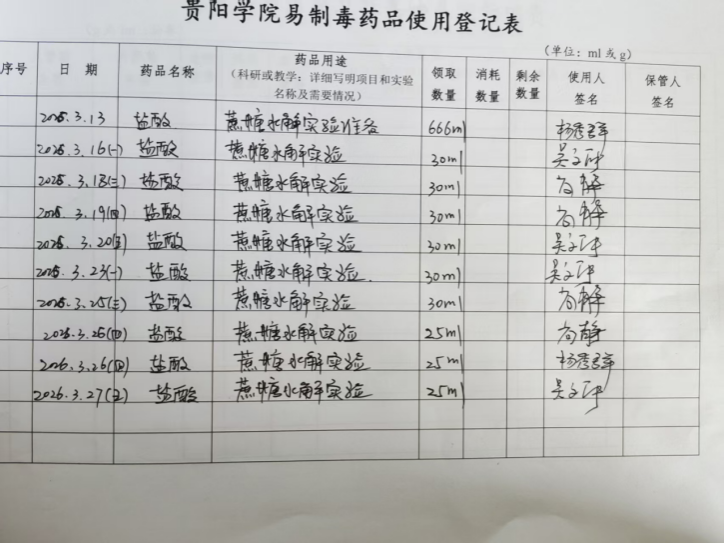 贵阳学院易制毒药品使用登记表
(单位：ml 或 g)
序号 日 期 药品名称 药品用途（科研或教学：详细写明项目和实验名称及需要情况） 领取数量 消耗数量 剩余数量 使用人签名 保管人签名
2026.3.13 盐酸 蔗糖水解实验准备 666ml
2026.3.16(一) 盐酸 蔗糖水解实验 30ml
2026.3.18(三) 盐酸 蔗糖水解实验 30ml
2026.3.19(四) 盐酸 蔗糖水解实验 30ml
2026.3.20(五) 盐酸 蔗糖水解实验 30ml
2026.3.23(一) 盐酸 蔗糖水解实验. 30ml
2026.3.25(三) 盐酸 蔗糖水解实验 30ml
2026.3.26(四) 盐酸 蔗糖水解实验 25ml
2026.3.26(四) 盐酸 蔗糖水解实验 25ml
2026.3.27(五) 盐酸 蔗糖水解实验 25ml